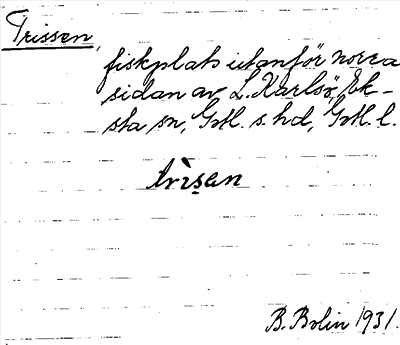 Trissen,
fiskplats utanför norra
sidan av L. Karlsö, Ek-
sta sn, Gotl. s. hd, Gotl. l.
trìsen
B. Bolin 1931.